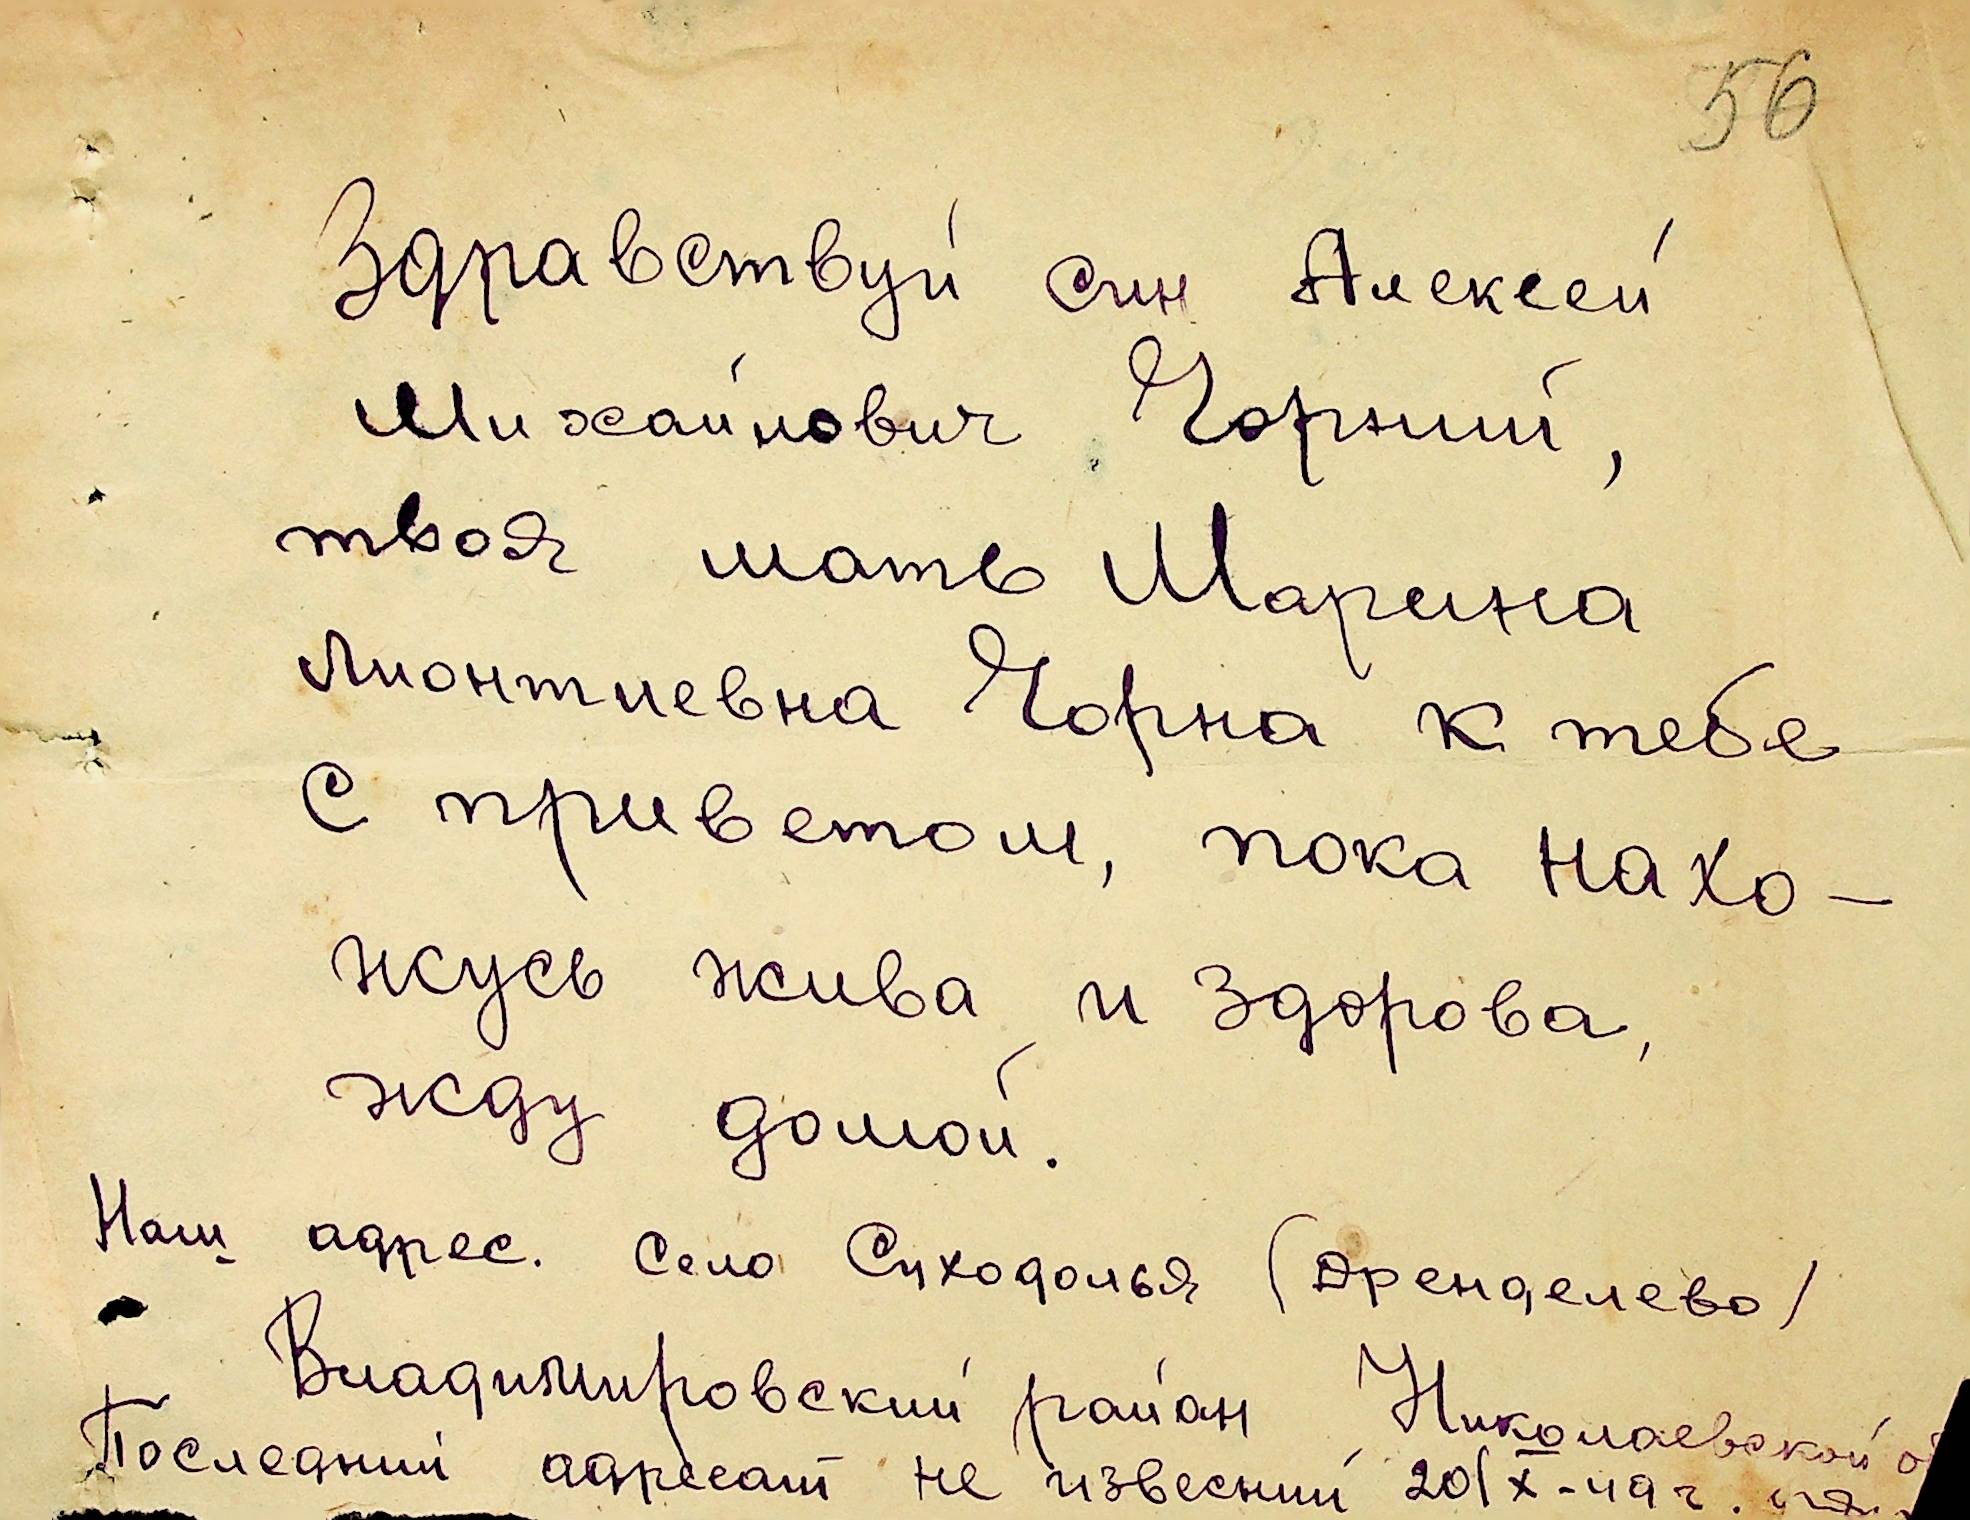 56
Здравствуй син Алексей
Михайлович Чорний,
твоя мать Марина
Лионтиевна Чорна к тебе
с приветом, пока нахо-
жусь жива и здорова,
жду домой.
Наш адрес. село Суходолья (Оренделево)
Владимировский район Николаевской об
Последний адресат не извесний 20/X-49 г.